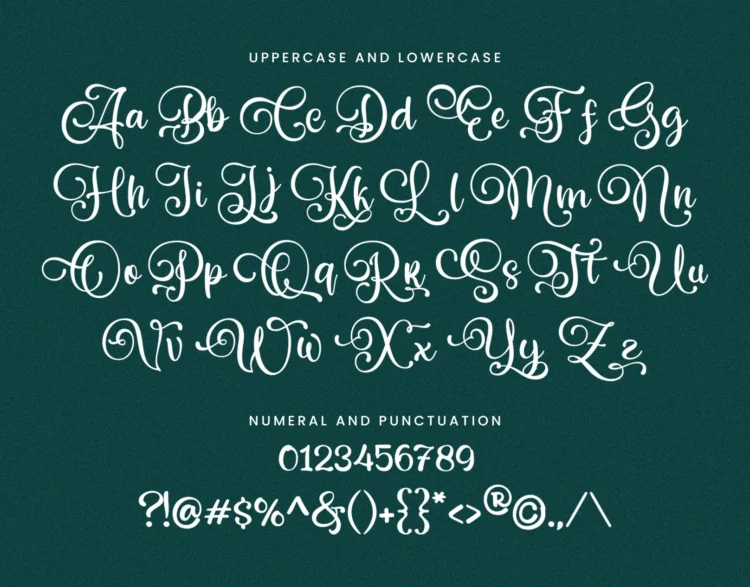 UPPERCASE AND LOWERCASE
Aa Bb Cc Dd Ee Ff Gg
Hh Ii Jj Kk Ll Mm Nn
Oo Pp Qq Rr Ss Tt Uu
Vv Ww Xx Yy Zz
NUMERAL AND PUNCTUATION
0123456789
?!@#$%^&()+{}*<>®©.,/\